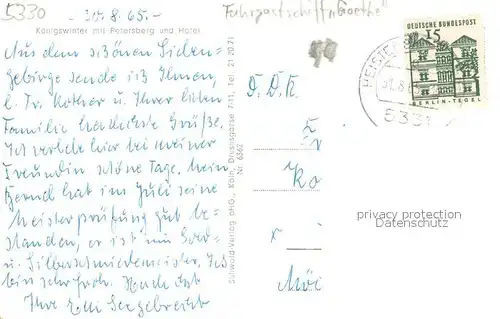 5330
30.8.65.-
Fahrgastschiff "Goethe"
Königswinter mit Petersberg und Hotel
Aus dem schönen Sieben-
gebirge sende ich Ihnen,
l. Fr. Kother u. Ihrer lieben
Familie herzlichste Grüße.
Ich verlebe hier bei meiner
Freundin schöne Tage. Mein
Bernd hat im Juli seine
Meisterprüfung gut be-
standen, er ist nun Gold-
u. Silberschmiedemeister. Ich
bin sehr froh.
Ihre
Stünwald-Verlag oHG., Köln, Drususgasse 7-11, Tel. 21 20 71
Nr. 6362
DEUTSCHE BUNDESPOST
15
BERLIN-TEGEL
HEISTER
31.8.6
5331
privacy protection
Datenschutz